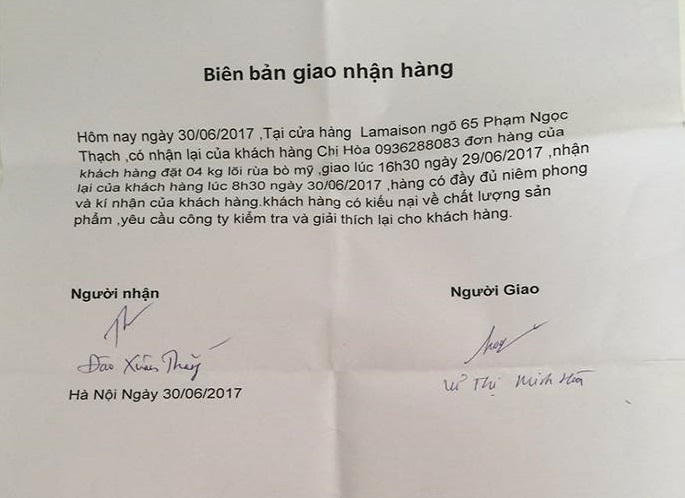 Biên bản giao nhận hàng
Hôm nay ngày 30/06/2017 ,Tại cửa hàng Lamaison ngõ 65 Phạm Ngọc
Thạch ,có nhận lại của khách hàng Chị Hòa 0936288083 đơn hàng của
khách hàng đặt 04 kg lõi rùa bò mỹ ,giao lúc 16h30 ngày 29/06/2017 ,nhận
lại của khách hàng lúc 8h30 ngày 30/06/2017 ,hàng có đầy đủ niêm phong
và kí nhận của khách hàng.khách hàng có kiếu nại về chất lượng sản
phẩm ,yêu cầu công ty kiểm tra và giải thích lại cho khách hàng.
Người nhận
Người Giao
Đào Xuân Thắng
Vũ Thị Minh Hòa
Hà Nội Ngày 30/06/2017